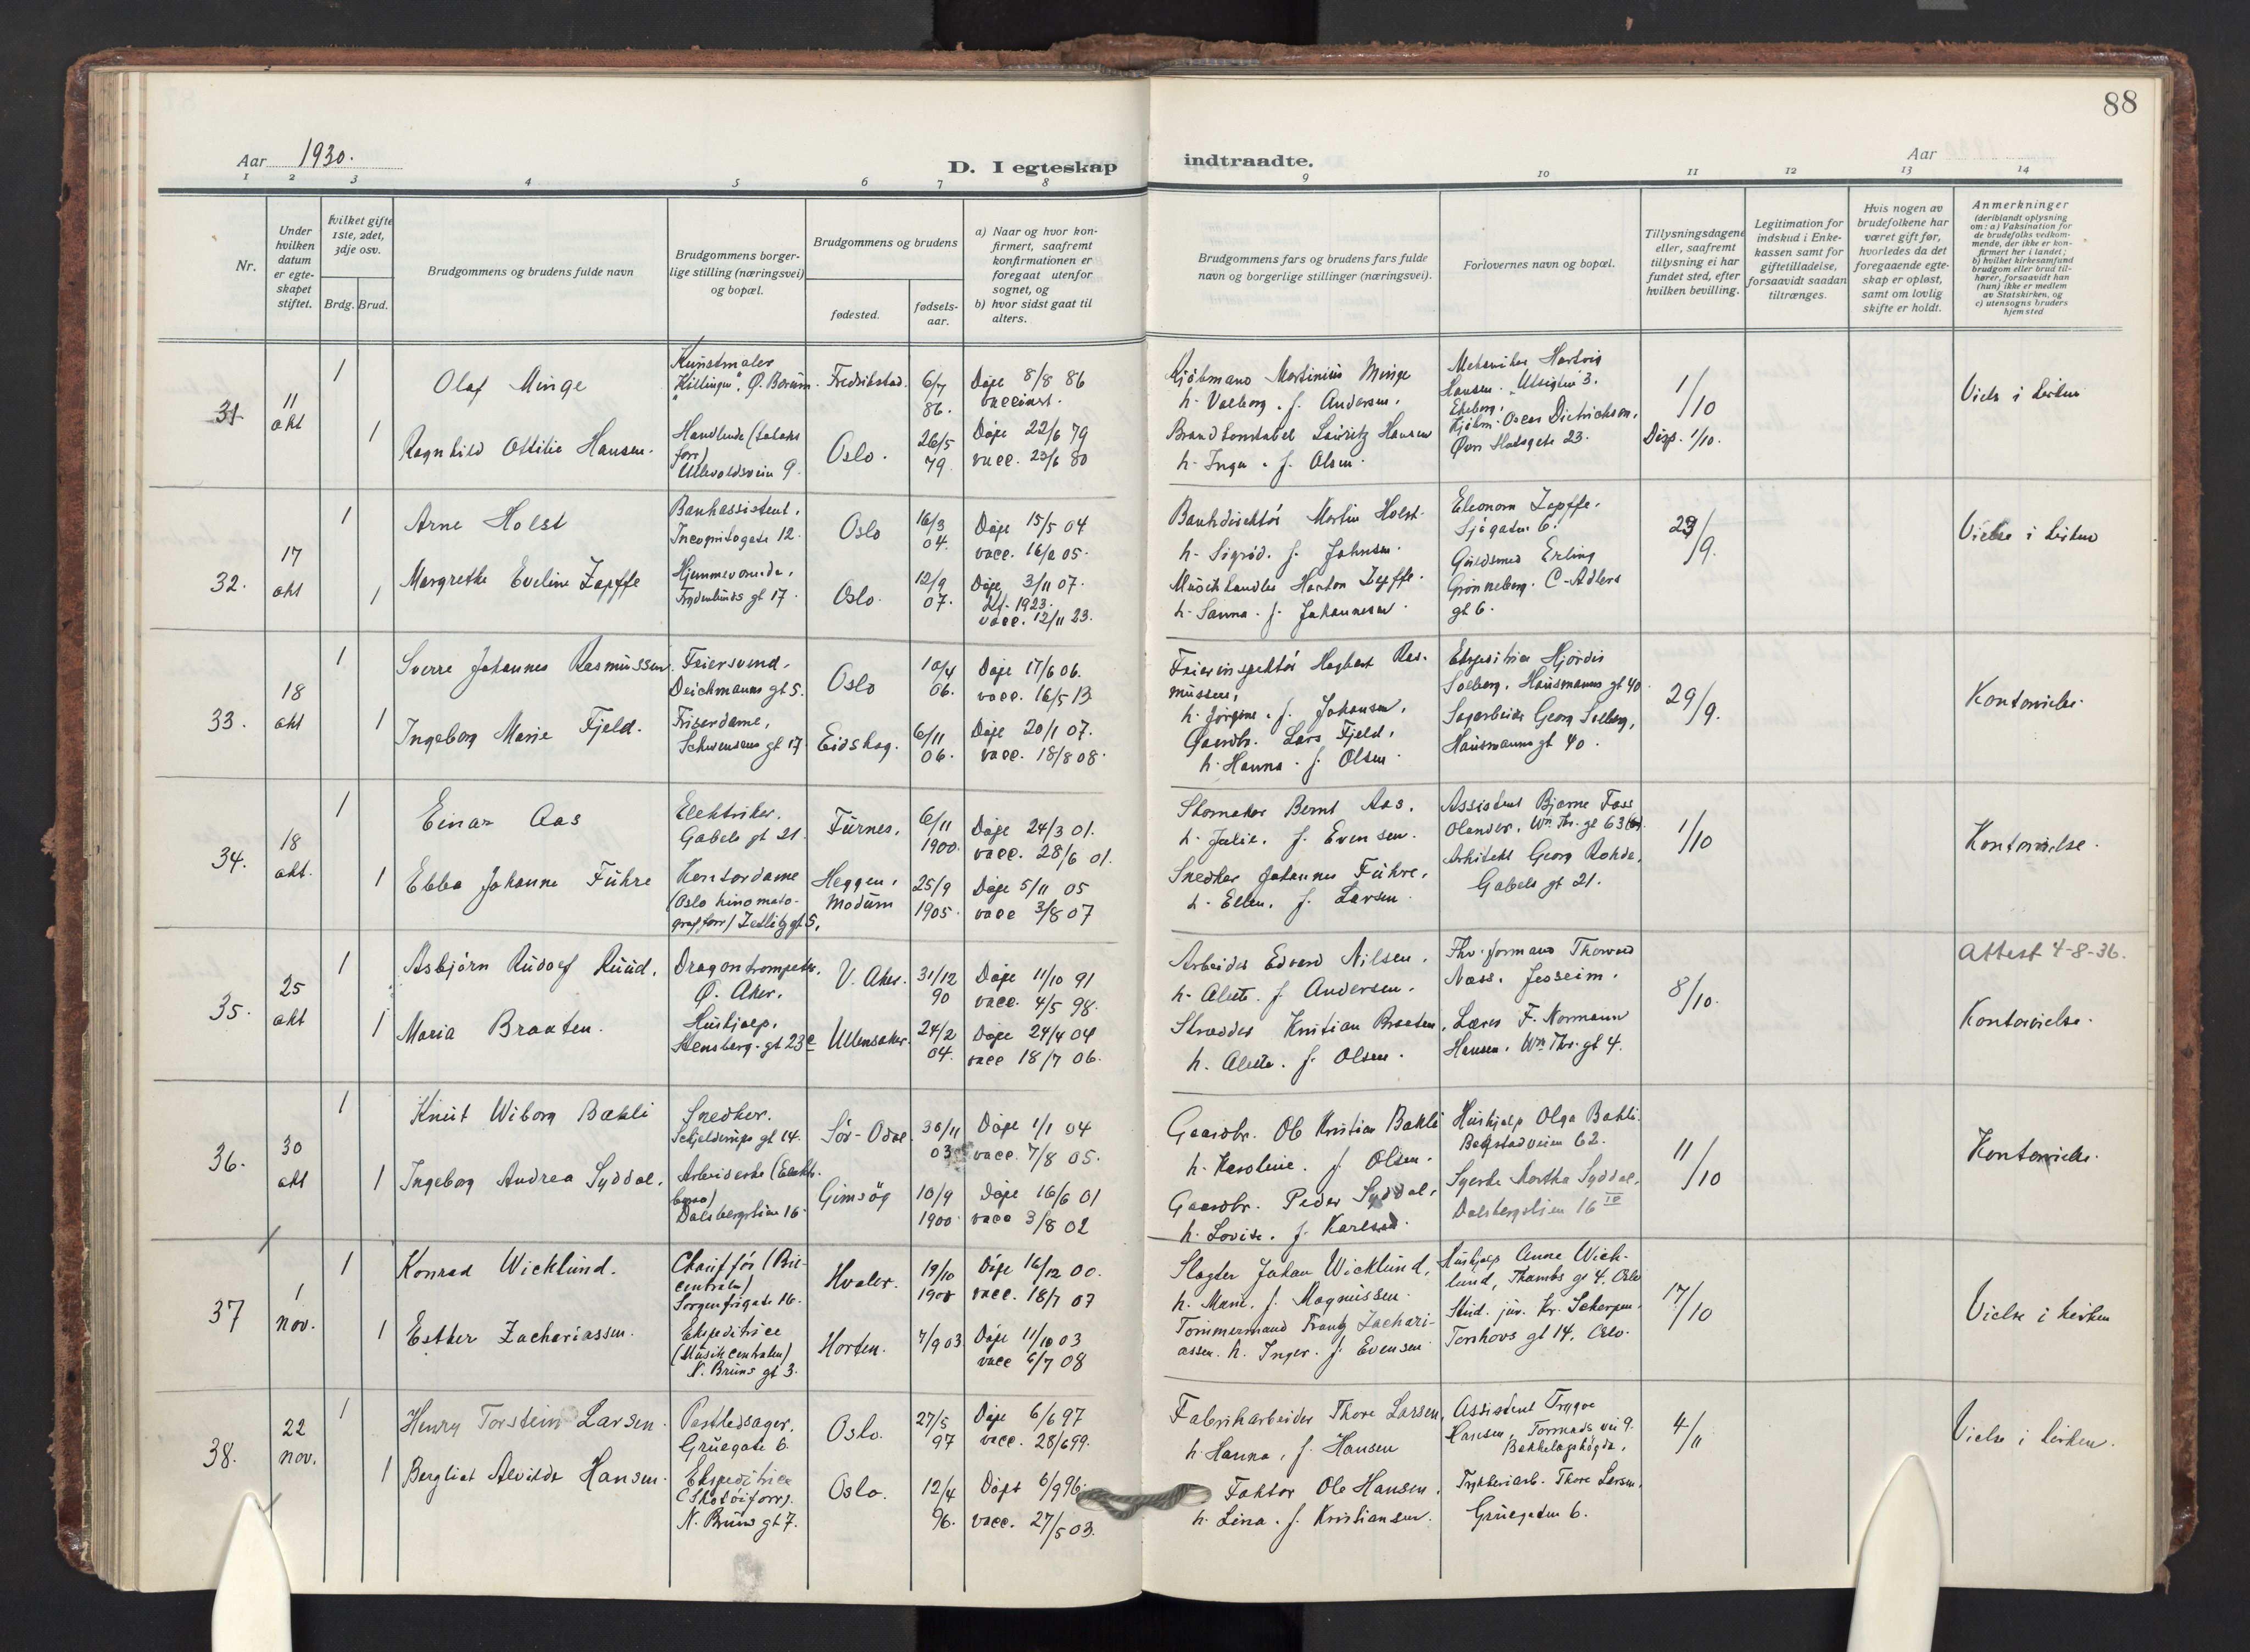 88
Aar 1930.
D. I egteskap
indtraadte.
Aar
1 2 3 4 5 6 7 8 9 10 11 12 13 14
Nr.
Under
hvilken
datum
er egte-
skapet
stiftet.
hvilket gifte
1ste, 2det,
3dje osv.
Brdg. Brud.
Brudgommens og brudens fulde navn
Brudgommens borger-
lige stilling (næringsvei)
og bopæl.
Brudgommens og brudens
fødested.
fødsels-
aar.
a) Naar og hvor kon-
firmert, saafremt
konfirmationen er
foregaat utenfor
sognet, og
b) hvor sidst gaat til
alters.
Brudgommens fars og brudens fars fulde
navn og borgerlige stillinger (næringsvei).
Forlovernes navn og bopæl.
Tillysningsdagene
eller, saafremt
tillysning ei har
fundet sted, efter
hvilken bevilling.
Legitimation for
indskud i Enke-
kassen samt for
giftetilladelse,
forsaavidt saadan
tiltrænges.
Hvis nogen av
brudefolkene har
været gift før,
hvorledes da det
foregaaende egte-
skap er opløst,
samt om lovlig
skifte er holdt.
Anmerkninger
(deriblandt oplysning
om: a) Vaksination for
de brudefolks vedkom-
mende, der ikke er kon-
firmert her i landet;
b) hvilket kirkesamfund
brudgom eller brud til-
hører, forsaavidt han
(hun) ikke er medlem
av Statskirken, og
c) utensogns bruders
hjemsted
31
11
okt
1
Olaf Minge
Kunstmaler
Ø. Bærum.
Fredrikstad.
6/7
86.
Døpt 8/8 86
Kjøbmand Martinius Minge
h. Valborg. f. Andersen.
Hartvig
Hansen. Utsigten 3.
Ekeberg.
1/10
Vielse i kirken
1
Ragnhild Ottilie Hansen.
Handlende (tobaks
forr)
Ullevoldsveien 9.
Oslo.
26/5
79.
Døpt 22/6 79
vacc. 23/6 80
Brandkonstabel Lauritz Hansen
h. Inga. f. Olsen.
Kjøbm. Oscar Dietrichson,
Øvre Slotsgate 23.
Disp. 1/10.
32.
17
okt
1
Arne Holst
Bankassistent.
Incognitogate 12.
Oslo
16/3
04.
Døpt 15/5 04
vacc. 05.
Bankdirektør Martin Holst.
h. Sigrid. f. Johnsen.
Eleonora Zapffe.
Sjøgaten 6.
29/9.
Vielse i kirken
1
Margrethe Eveline Zapffe
Hjemmeværende.
Frydenlunds gt 17.
Oslo.
12/9
07.
Døpt 3/11 07.
Kf. 1923.
vacc. 12/11 23.
Musikhandler Zapffe.
h. Sanna. f. Johannesen.
Guldsmed Erling
Grønneberg. C-Adlers
gt 6.
33.
18
okt
1
Sverre Johannes Rasmussen.
Feiersvend.
Deichmanns gt 5.
Oslo
10/4
06.
Døpt 17/6 06.
vacc. 16/5 13
Feierinspektør Hagbart Ras-
mussen,
h. Jørgine. f. Johansen.
Ekspeditrice Hjørdis
Solberg. Hausmanns gt 40.
29/9.
Kontorvielse.
1
Ingeborg Marie Fjeld.
Friserdame,
Schwensens gt 17
Eidskog.
6/11
06.
Døpt 20/1 07.
vacc. 18/8 08.
Gaardbr. Lars Fjeld.
h. Hanna. f. Olsen.
Sagarbeider Georg Solberg,
Hausmanns gt 40.
34.
18
okt.
1
Einar Aas
Elektriker.
Gabels gt 21.
Furnes.
6/11
1900.
Døpt 24/3 01.
vacc. 28/6 01.
Skomaker Bernt Aas.
h. Julie. f. Evensen.
Assistent Bjarne Foss
Olander. Wm Thr. gt 63
1/10
Kontorvielse.
1
Ebba Johanne Führe
Kontordame
(Oslo kinomato-
graf forr) Zetlitz gt 5.
Heggen,
Modum
25/9
1905.
Døpt 5/11 05
vacc 3/8 07
Snedker Johannes Führe,
h. Ellen. f. Larsen.
Arkitekt Georg Rohde,
Gabels gt 21.
35.
25
okt
1
Asbjørn Rudolf Ruud.
Dragontrompeter.
Ø. Aker.
V. Aker.
31/12
90
Døpt 11/10 91
vacc. 4/5 98.
Arbeider Edvard Nilsen.
h. Alette. f. Andersen.
Thv. formand Thorvald
Næss. Jessheim.
8/10.
Attest 4-8-36.
Kontorvielse.
1
Maria Braaten.
Hushjælp.
Stensberg. gt 23c
Ullensaker.
24/2
04.
Døpt 24/4 04
vacc 18/7 06.
Skrædder Kristian Braaten.
h. Alette. f. Olsen.
Lærer F. Normann
Hansen. Wm Thr. gt 4.
36.
30
okt
1
Knut Wiborg Bakli
Snedker.
Schjelderups gt 14.
Sør-Odal.
30/11
03
Døpt 1/1 04
vacc. 7/8 05.
Gaardbr. Ole Kristian Bakli
h. Karoline. f. Olsen.
Hushjælp Olga Bakli.
Bogstadveien 62.
11/10
Kontorvielse.
1
Ingeborg Andrea Syddal.
Arbeiderske (Elektr.
Dalsbergstien 16.
Gimsøy
10/9
1900.
Døpt 16/6 01
vacc 3/8 02
Gaardbr. Peder Syddal,
h. Lovise. f. Karlsen.
Syerske Martha Syddal,
Dalsbergstien 16 IV
37
1
nov.
1
Konrad Wicklund.
Chauffør (Bil-
centralen)
Sorgenfrigate 16.
Hvaler.
19/10
1900
Døpt 16/12 00.
vacc. 18/7 07
Slagter Johan Wicklund,
h. Marie. f. Magnussen.
Hushjælp Anna Wick-
lund, Thambs gt 4. Oslo
17/10
Vielse i kirken
1
Esther Zachariassen.
Ekspeditrice
(Musikcentralen)
N. Bruns gt 3.
Horten.
7/9 03
Døpt 11/10 03
vacc 6/7 08
Tømmermand Frantz Zachari-
assen. h. Inger. f. Evensen
Stud. jur. Kr. Scharpen.
Torshovs gt 14. Oslo.
38.
22
nov.
1
Henry Torstein Larsen.
Postledsager.
Gruegate 6.
Oslo.
27/5
97
Døpt 6/6 97
vacc. 28/6 99.
Fabrikarbeider Thore Larsen,
h. Hanna, f. Hansen
Assistent Trygve
Hansen, Tormods vei 9.
Bekkelagshøgda.
4/11
Vielse i kirken.
1
Bergliot Alvilde Hansen.
Ekspeditrice
(Skotøiforr).
N. Bruns gt 7.
Oslo.
12/4
96.
Døpt 6/9 96.
vacc. 27/5 03.
Faktor Ole Hansen.
h. Lina. f. Kristiansen.
Trykkeriarb. Thore Larsen.
Gruegaten 6.